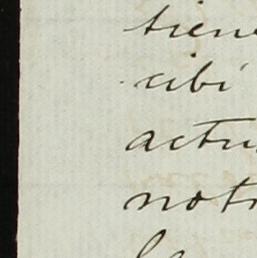 tien
cibi
actu
notr